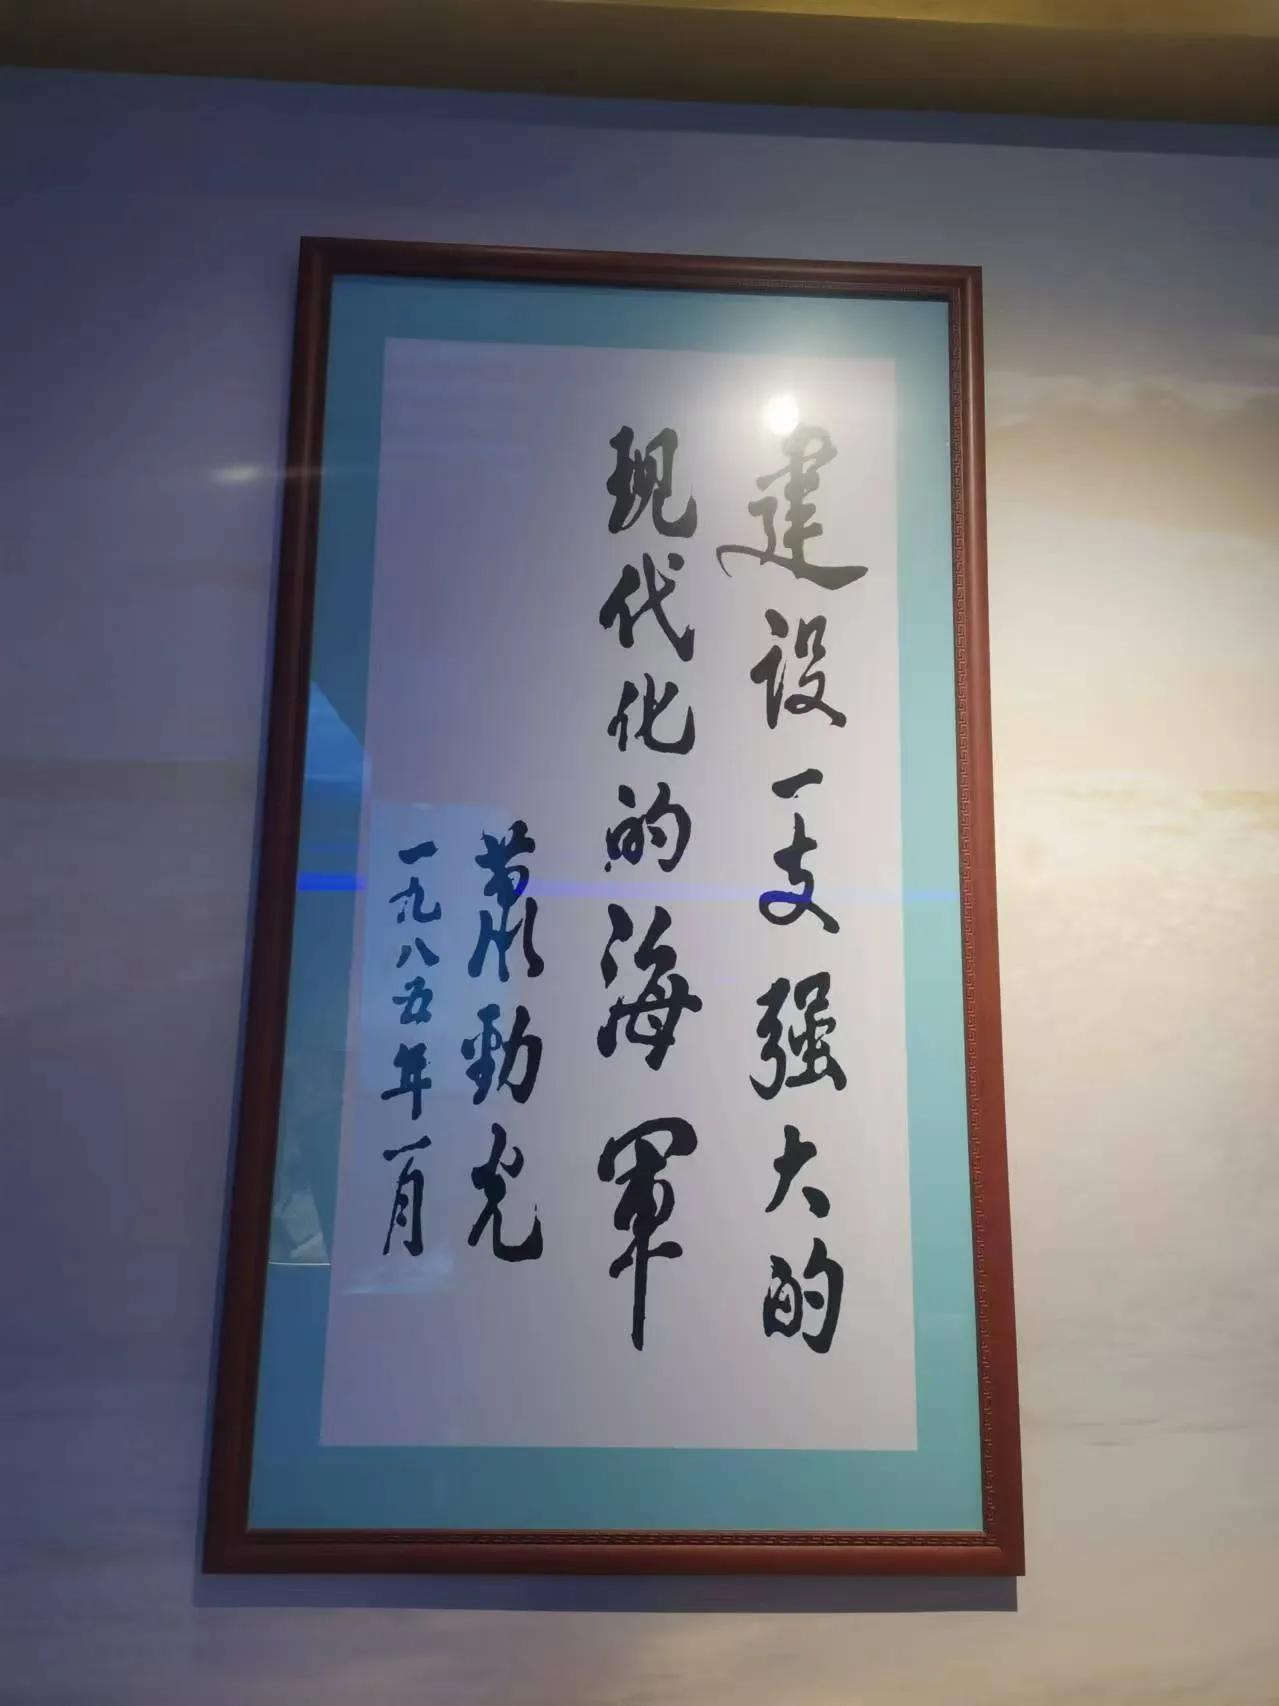 建设一支强大的
现代化的海军
萧劲光
一九八五年一月